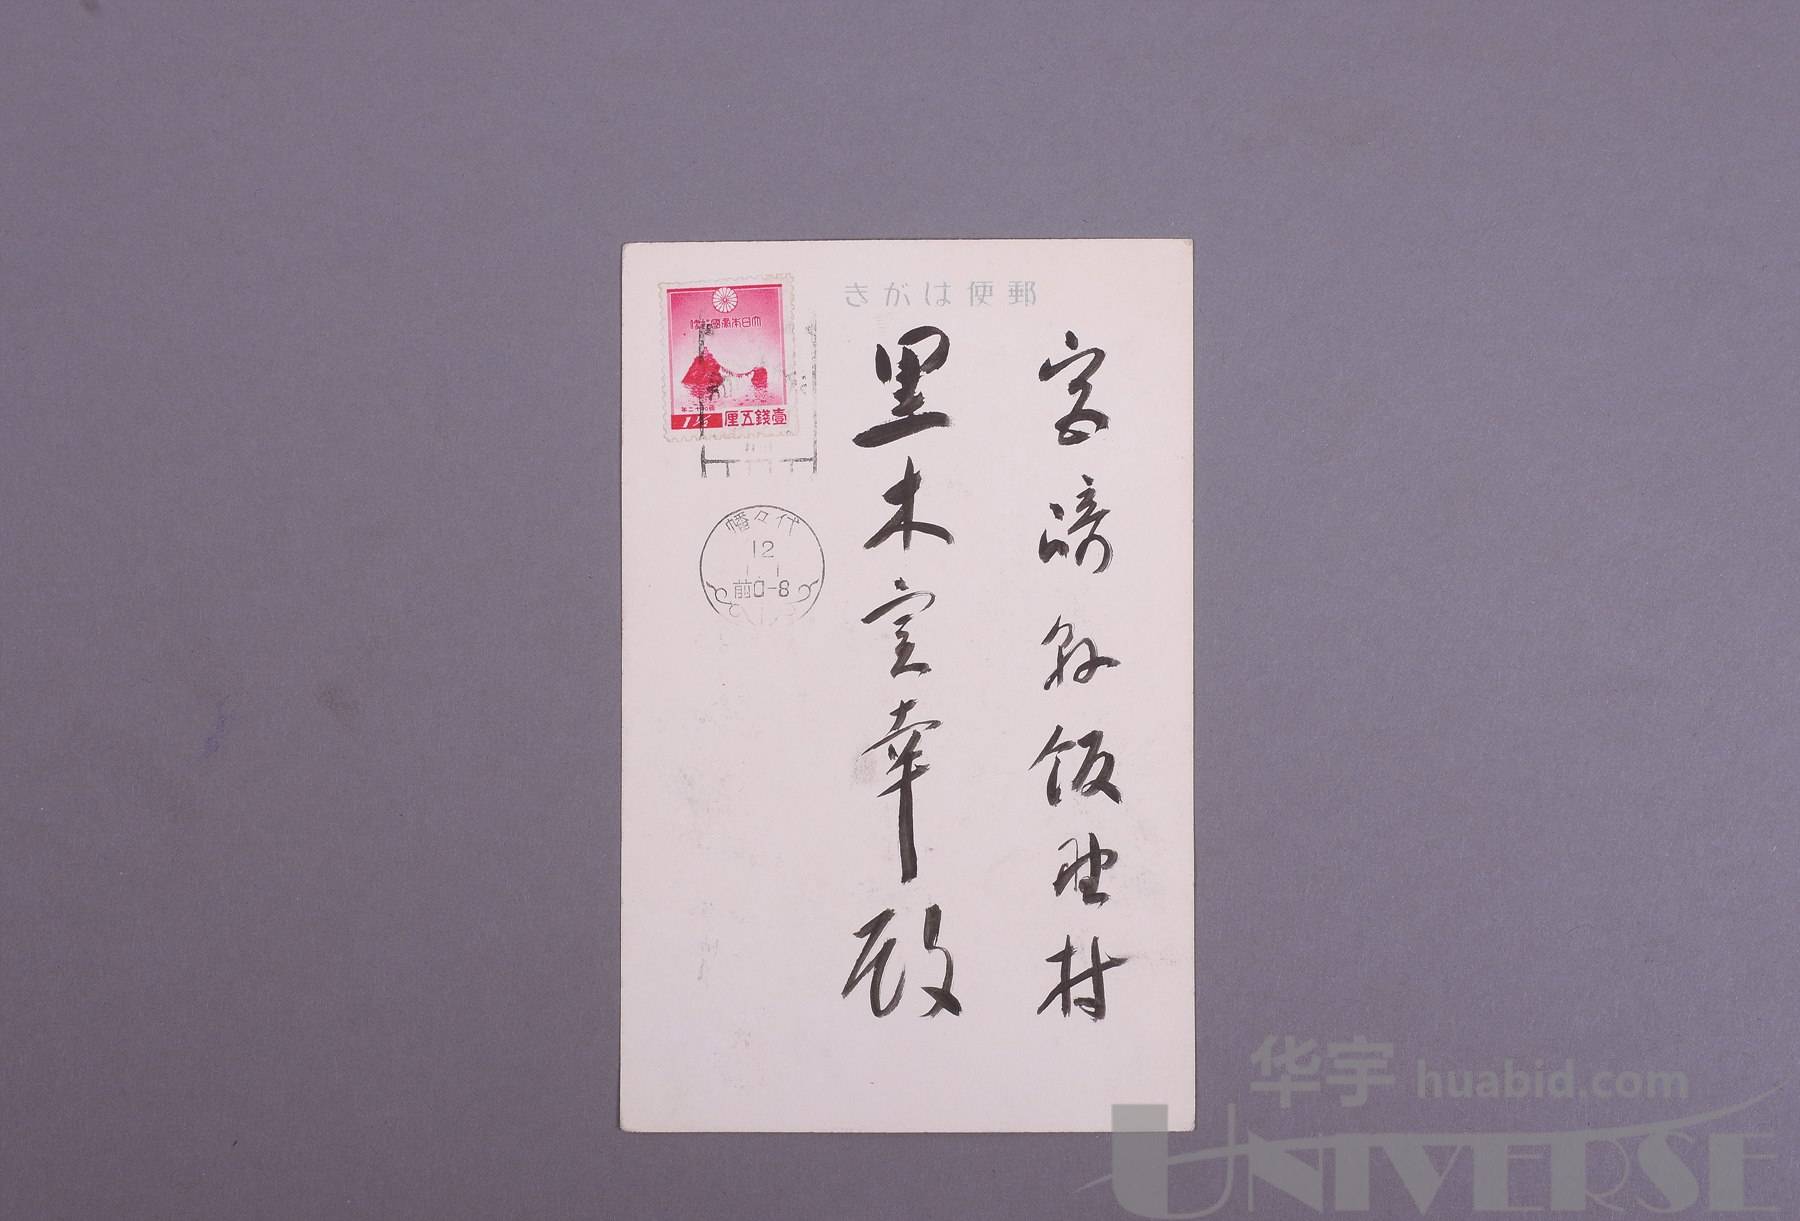 郵便はがき
宮崎縣飯野村
黒木宣幸殿
大日本帝國郵便
昭和十二年
1½ 壹錢五厘
代々幡
12
1.1
前0-8
华宇 huabid.com
UNIVERSE